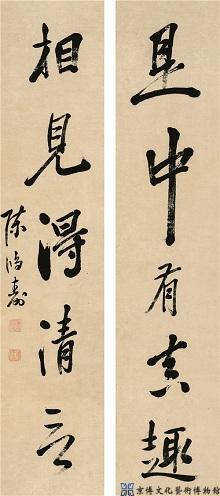 是中有真趣
相見得清言
陳鴻壽
京博文化藝術博物館